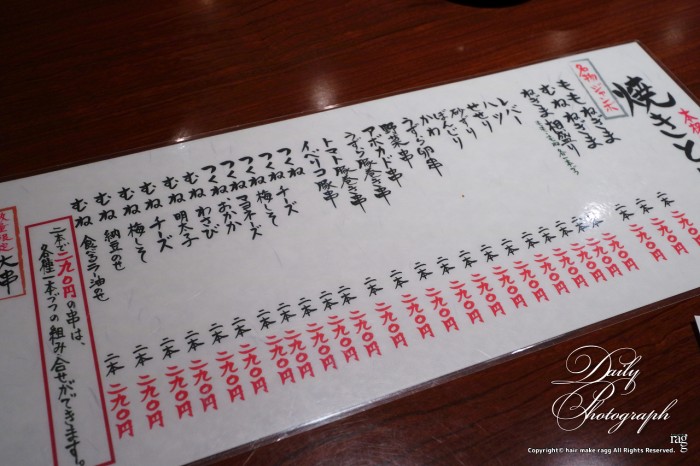 焼きと
名物 ジャンボ
ももねぎま 二本 二九〇円
むねねぎま 二本 二九〇円
ねぎま相盛り 二本 二九〇円
レバー 二本 二九〇円
ハツ 二本 二九〇円
せせり 二本 二九〇円
砂ずり 二本 二九〇円
ぼんじり 二本 二九〇円
かわ 二本 二九〇円
うずら卵串 二本 二九〇円
野菜串 二本 二九〇円
アボカド豚巻き串 二本 二九〇円
うずら豚巻き串 二本 二九〇円
トマト豚巻き串 二本 二九〇円
イベリコ豚串 二本 二九〇円
つくね 二本 二九〇円
つくね チーズ 二本 二九〇円
つくね 梅しそ 二本 二九〇円
つくね マヨネーズ 二本 二九〇円
つくね おかか 二本 二九〇円
むね わさび 二本 二九〇円
むね 明太子 二本 二九〇円
むね チーズ 二本 二九〇円
むね 梅しそ 二本 二九〇円
むね 納豆のせ 二本 二九〇円
むね 食べるラー油のせ 二本 二九〇円
二本で二九〇円の串は、
各種一本づつの組み合せができます。
数量限定
大串
Daily
Photograph
ragg
Copyright© hair make ragg All Rights Reserved.